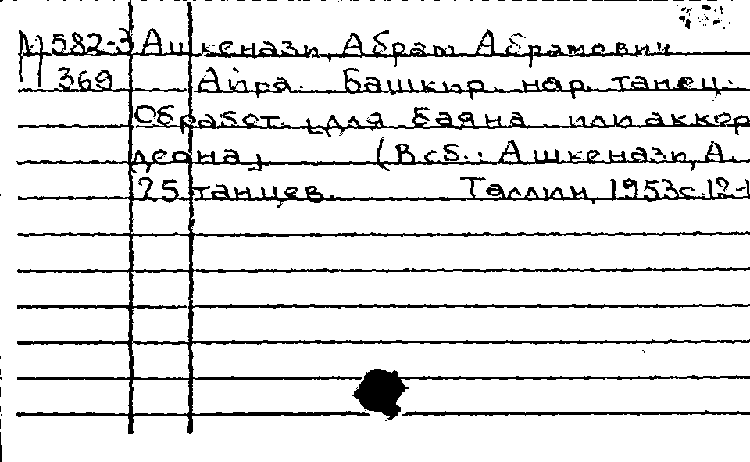 М582-3 Ашкенази, Абрам Абрамович
369 Айра. Башкир. нар. танец.
Обработ. для баяна или аккор
деона, (В сб.: Ашкенази, А.
25 танцев. Таллин, 1953 с. 12-1